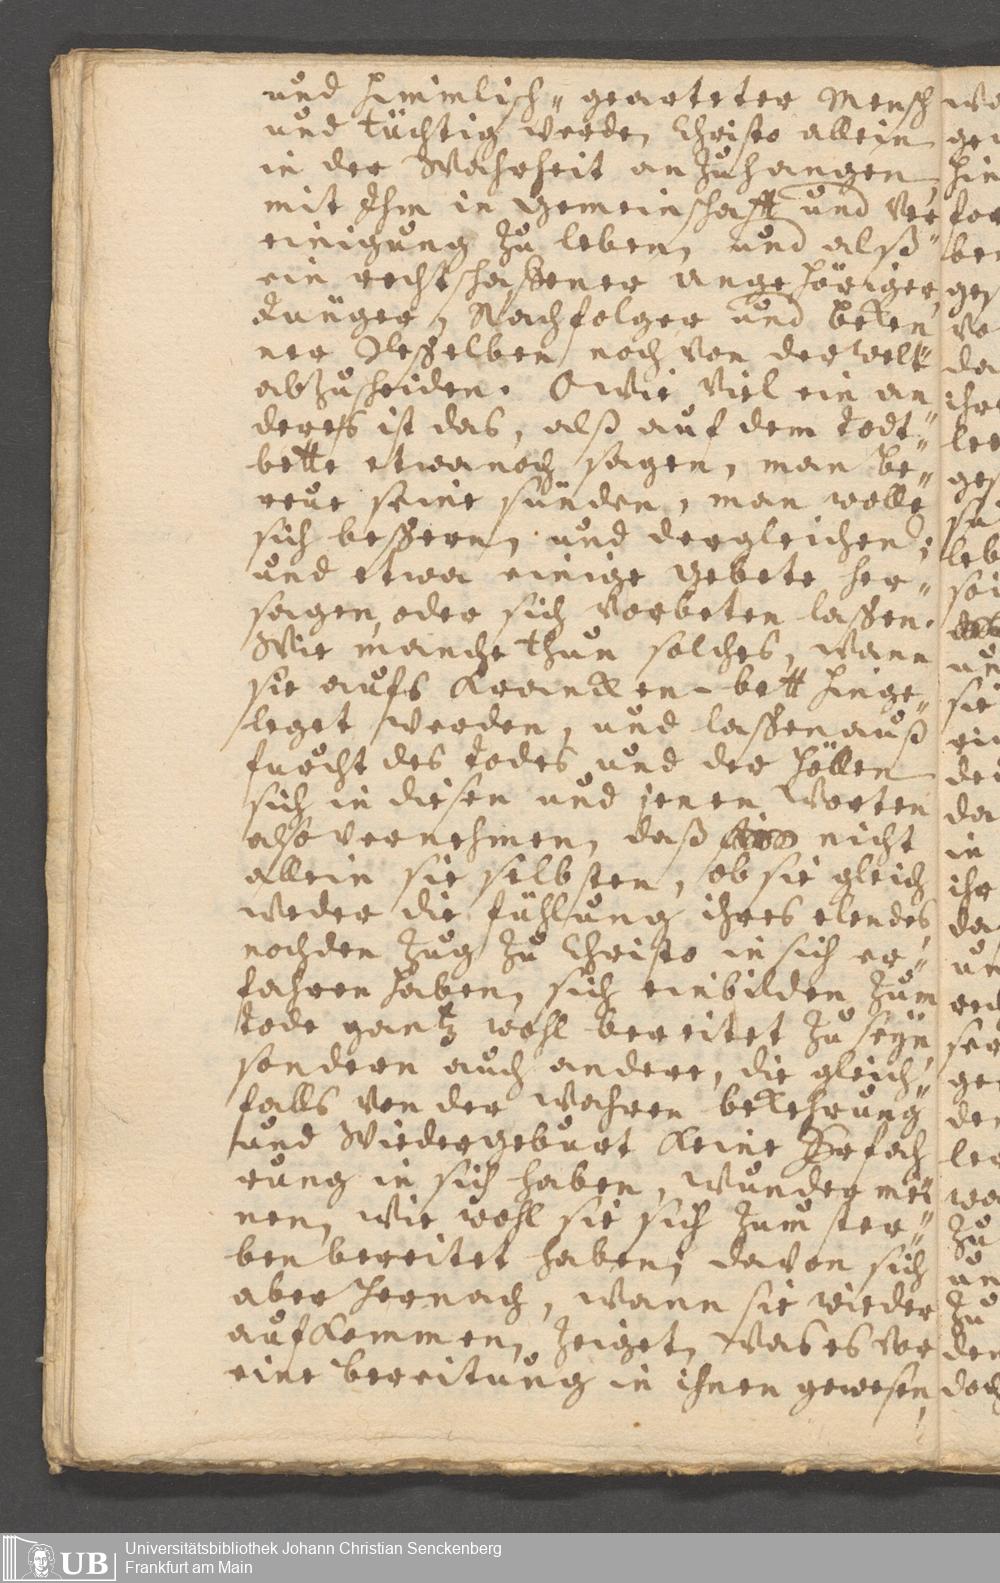 und himmlisch„ gearteter Mensch
und tüchtig werde, Christo allein
in der Wahrheit anzuhangen,
mit Ihm in Gemeinschafft und Ver„
einigung zu leben, und alß
ein rechtschaffener angehöriger,
Jünger, Nachfolger und beken„
ner Desselben noch von der welt
abzuscheiden. O wie viel ein an„
deres ist das, alß auf dem todt„
bette etwa noch sagen, man be„
reue seine sünden, man wolle
sich bessern, und dergleichen;
und etwa einige gebete her„
sagen, oder sich vorbeten lassen.
Wie manche thun solches, wann
sie aufs Krancken-bett hinge„
leget werden, und lassen auß
furcht des todes und der Höllen
sich in diesen und jenen Worten
also vernehmen, daß nicht
allein sie selbsten, ob sie gleich
weder die fühlung ihres elendes
noch den Zug zu Christo in sich er„
fahren haben, sich einbilden zum
tode gantz wohl bereitet zu seyn,
sondern auch andere, die gleich„
falls von der wahren bekehrung
und Wiedergeburt keine Erfah„
rung in sich haben, wunder mei„
nen, wie wohl sie sich zum ster„
ben bereitet haben; davon sich
aber hernach, wann sie wieder
aufkommen, zeiget, was es vor
eine bereitung in ihnen gewesen,
UB
Universitätsbibliothek Johann Christian Senckenberg
Frankfurt am Main